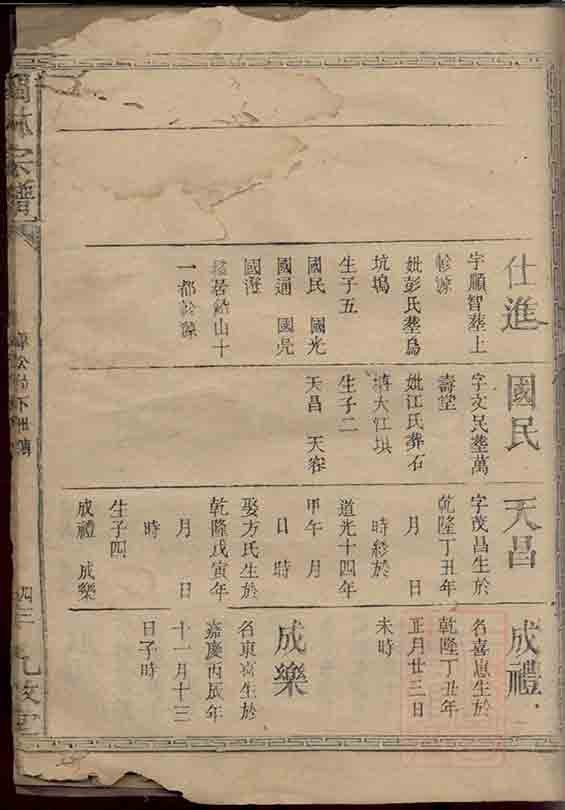 仕進
字順智塟上
斡源
妣彭氏塟烏
坑塢
生子五
國民 國光
國通 國亮
國澄
居鉛山十
一都斡源
國民
字文民塟萬
壽堂
妣江氏葬石
大江垻
生子二
天昌 天容
天昌
字茂昌生於
乾隆丁丑年
月 日
時終於
道光十四年
甲午 月
日 時
娶方氏生於
乾隆戊寅年
月 日
時
生子四
成禮 成樂
成禮
名喜惠生於
乾隆丁丑年
正月廿三日
未時
成樂
名東喜生於
嘉慶丙辰年
十一月十三
日子時
林宗譜
四三